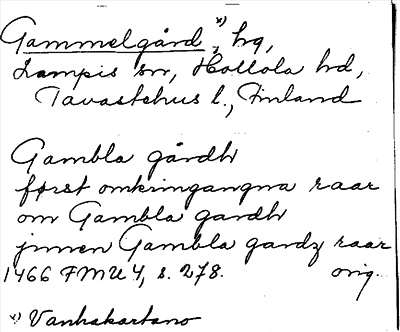 Gammelgård, x) hg,
Lampis sn, Hollola hd,
Tavastehus l., Finland
Gambla gårdh
først omkringangna raar
om Gambla gardh
jnnen Gambla gardz raar
1466 FMU 4, s. 278. orig.
x) Vanhakartano